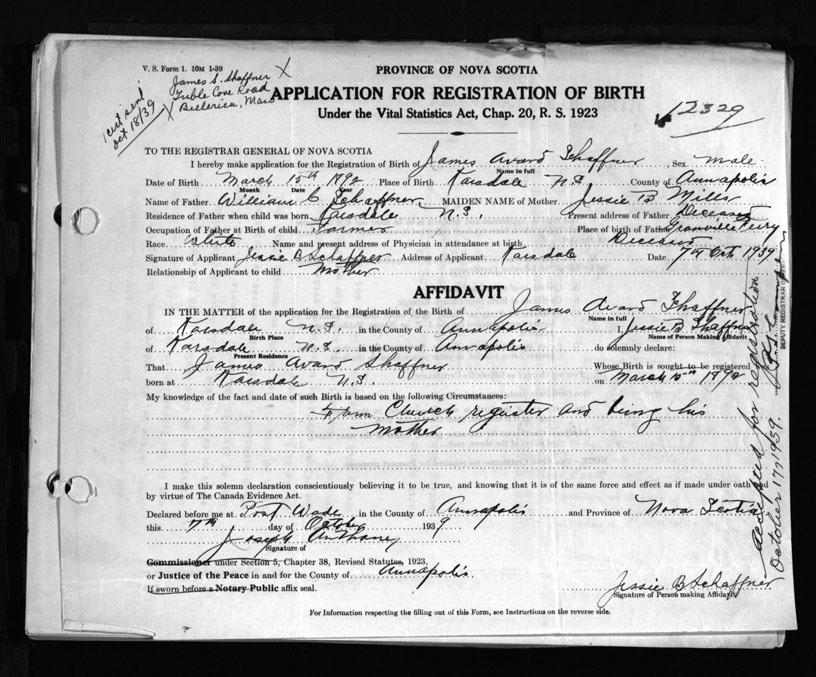 V. S. Form 1. 10M 1-39
James S. Shaffner X
Treble Cove Road
Billerica, Mass
1 cert sent
Oct 18/39 X
PROVINCE OF NOVA SCOTIA
APPLICATION FOR REGISTRATION OF BIRTH
Under the Vital Statistics Act, Chap. 20, R. S. 1923
12329
TO THE REGISTRAR GENERAL OF NOVA SCOTIA
I hereby make application for the Registration of Birth of James Avard Shaffner Sex male
Name in full
Date of Birth March 15th 1892 Place of Birth Karsdale N.S. County of Annapolis
Month Date Year
Name of Father William C Schaffner MAIDEN NAME of Mother Jessie B Mills
Residence of Father when child was born Karsdale N.S. Present address of Father Deceased
Occupation of Father at Birth of child Farmer Place of birth of Father Granville Ferry
Race White Name and present address of Physician in attendance at birth Deceased
Signature of Applicant Jessie B Schaffner Address of Applicant Karsdale Date 7th Oct. 1939
Relationship of Applicant to child Mother
AFFIDAVIT
IN THE MATTER of the application for the Registration of the Birth of James Avard Shaffner
Name in full
of Karsdale N.S. in the County of Annapolis I, Jessie B Shaffner
Birth Place Name of Person Making Affidavit
of Karsdale N.S. in the County of Annapolis do solemnly declare:
Present Residence
That James Avard Shaffner Whose Birth is sought to be registered
born at Karsdale N.S. on March 15th 1892
My knowledge of the fact and date of such Birth is based on the following Circumstances:
From Church register and being his
mother
I make this solemn declaration conscientiously believing it to be true, and knowing that it is of the same force and effect as if made under oath and
by virtue of The Canada Evidence Act.
Declared before me at Port Wade in the County of Annapolis and Province of Nova Scotia
this 7th day of October 1939
Joseph Anthony
Signature of
Commissioner under Section 5, Chapter 38, Revised Statutes, 1923,
or Justice of the Peace in and for the County of Annapolis
If sworn before a Notary Public affix seal.
Jessie B Schaffner
Signature of Person making Affidavit
For Information respecting the filling out of this Form, see Instructions on the reverse side.
accepted for registration
October 17 1939.
DEPUTY REGISTRAR